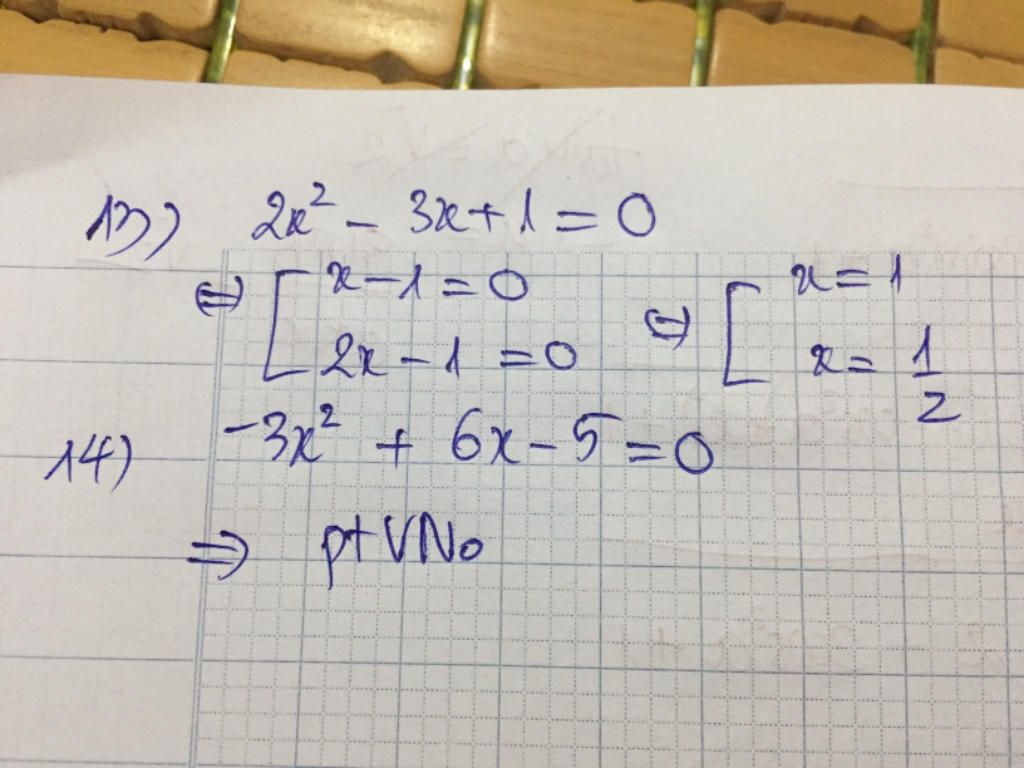 13) 2x² - 3x + 1 = 0
⇔ [ x - 1 = 0 ⇔ [ x = 1
2x - 1 = 0 x = 1/2
14) -3x² + 6x - 5 = 0
⇒ ptVNo